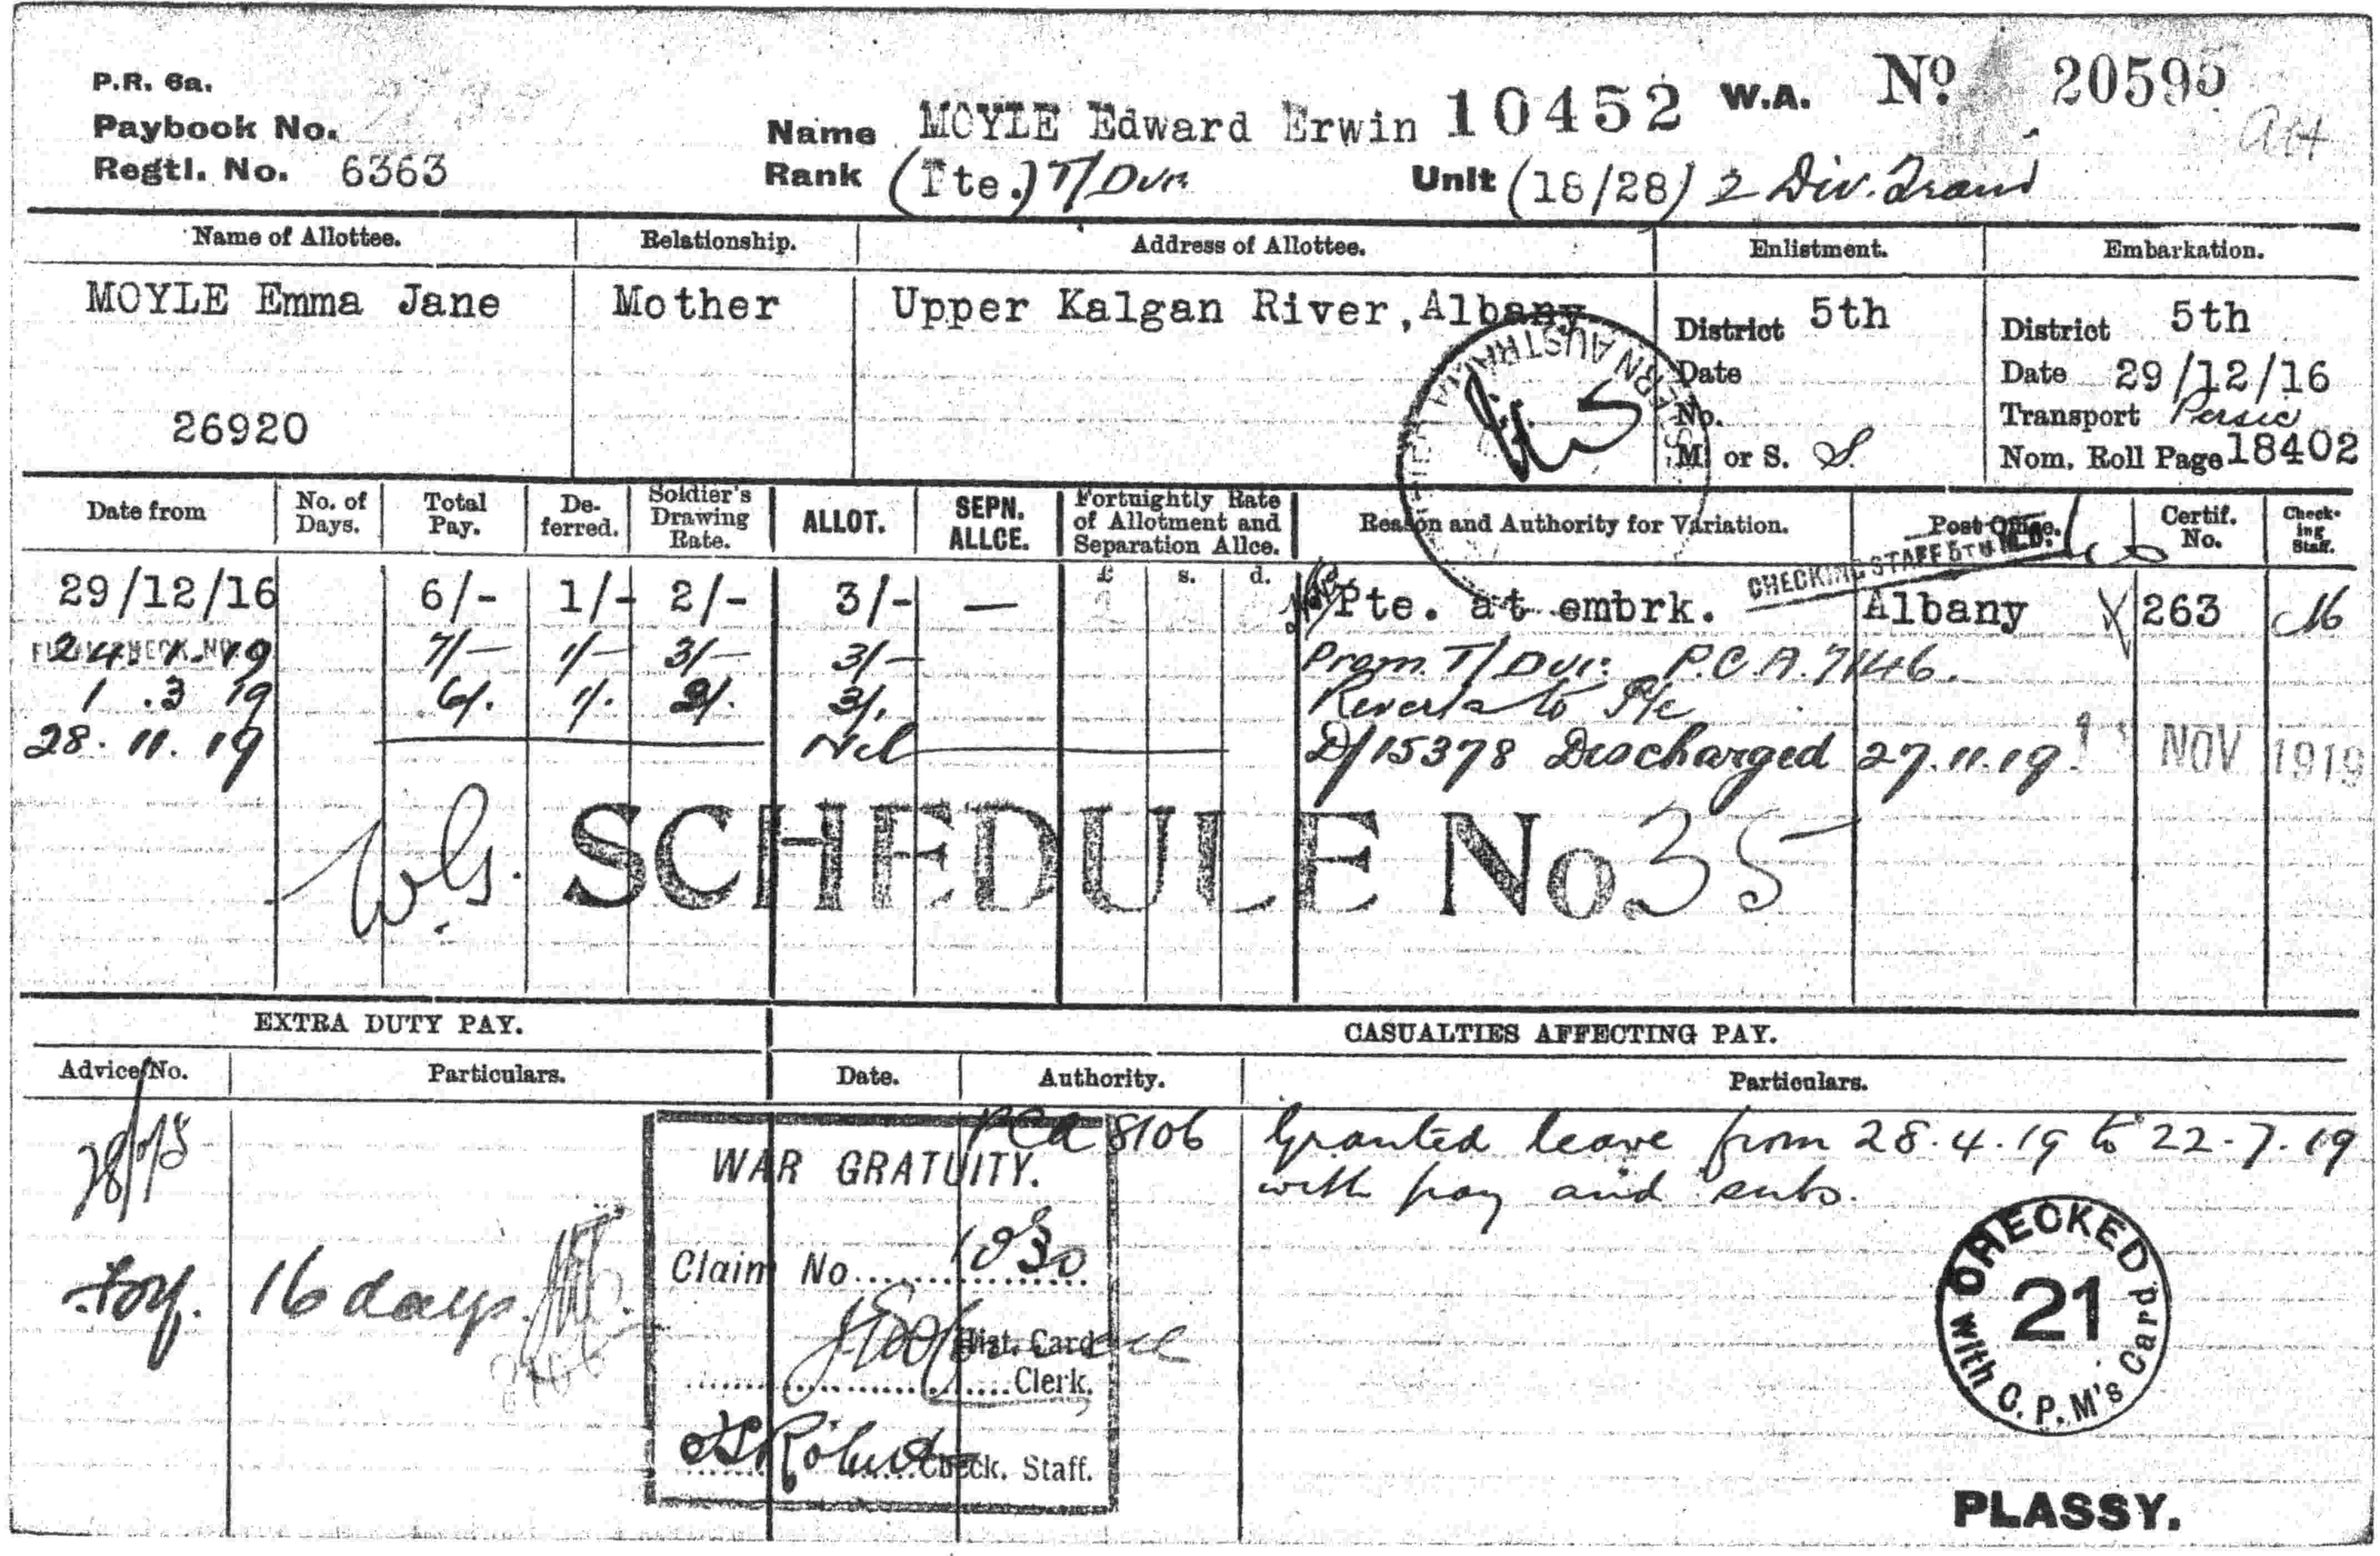 P.R. 6a.
Paybook No.
Regtl. No. 6363
Name MOYLE Edward Erwin 10452 W.A. No. 20595
Rank (Pte.) T/Dvr Unit (18/28) 2 Div. Train
Name of Allottee. Relationship. Address of Allottee. Enlistment. Embarkation.
MOYLE Emma Jane Mother Upper Kalgan River, Albany
26920
District 5th
Date
No.
M. or S. S.
District 5th
Date 29/12/16
Transport Persic
Nom. Roll Page 18402
Date from No. of Days. Total Pay. De-ferred. Soldier's Drawing Rate. ALLOT. SEPN. ALLCE. Fortnightly Rate of Allotment and Separation Allce. Reason and Authority for Variation. Post Office. Certif. No. Check-ing Staff.
£ s. d.
CHECKING STAFF 5TH M.D.
29/12/16 6/- 1/- 2/- 3/- — Pte. at embrk. Albany 263
24.1.19 7/- 1/- 3/- 3/- Prom. T/Dvr. P.C.A. 7146.
1.3.19 6/. 1/. 2/. 3/. Reverts to Pte
28.11.19 Nil D/15378 Discharged 27.11.19. NOV 1919
SCHEDULE No 35
EXTRA DUTY PAY. CASUALTIES AFFECTING PAY.
Advice No. Particulars. Date. Authority. Particulars.
PCA 8106 Granted leave from 28.4.19 to 22.7.19
with pay and subs.
16 days.
WAR GRATUITY.
Claim No. 1030
Dist. Card
Clerk.
Check. Staff.
CHECKED
21
with C.P.M's Card
PLASSY.